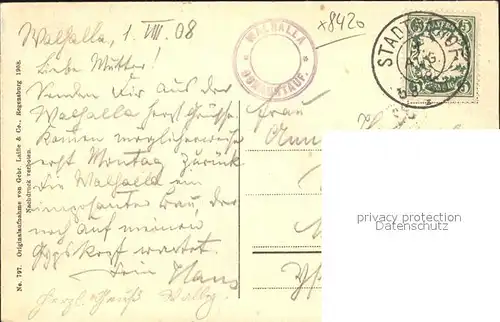 Walhalla, 1. VIII. 08
Liebe Mutter!
Senden Dir aus der
Walhalla herzl. Grüsse.
Kommen möglicherweise
erst Montag zurück
Die Walhalla ein
imposanter Bau, der
noch auf meinen
Gypskopf wartet.
Dein Hans
Herzl. Gruß Wally
WALHALLA
DONAUSTAUF.
x8420
STADTAMHOF
AUG.
5
Frau
No. 797. Originalaufnahme von Gebr. Laifle & Co., Regensburg 1908.
Nachdruck verboten.
privacy protection
Datenschutz